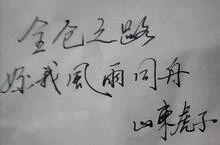 全仓之路
你我風雨同舟
山東虎子